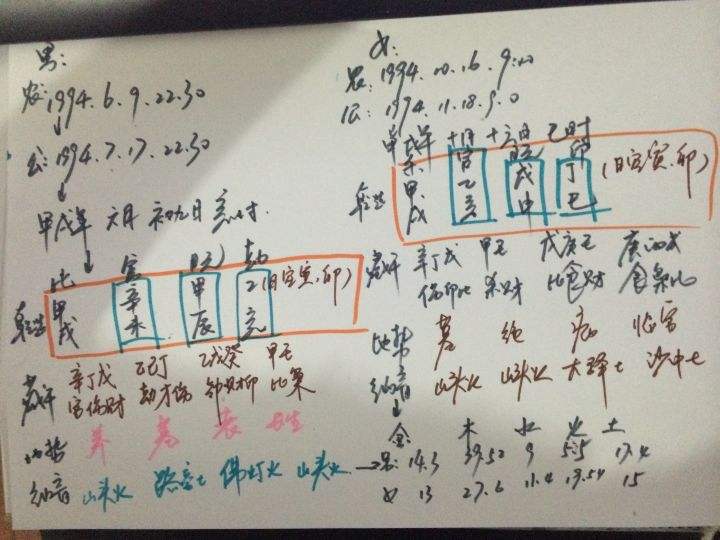 男:
农:1994.6.9.22.30
公:1994.7.17.22.30
甲戌年 六月 初九日 亥时
比 官 日元 劫
甲 辛 甲 乙 (日空寅、卯)
戌 未 辰 亥
乾造
藏干 辛丁戊 乙己丁 乙戊癸 甲壬
官伤财 劫才伤 劫财印 比枭
地势 养 墓 衰
纳音 山头火 路旁土 佛灯火 山头火
女:
农:1994.10.16.9:00
公:1994.11.18.9.0
甲戌年 十月 十六日 巳时
杀 官 日元 印
甲 乙 戊 丁 (日空寅、卯)
戌 亥 申 巳
藏干 辛丁戊 甲壬 戊庚壬 庚丙戊
伤印比 杀财 比食财 食枭比
地势 墓 绝 病 临官
纳音 山头火 山头火 大驿土 沙中土
金 木 水 火 土
男:14.3 39.52 9 17.4
女 13 27.6 11.4 19.54 15